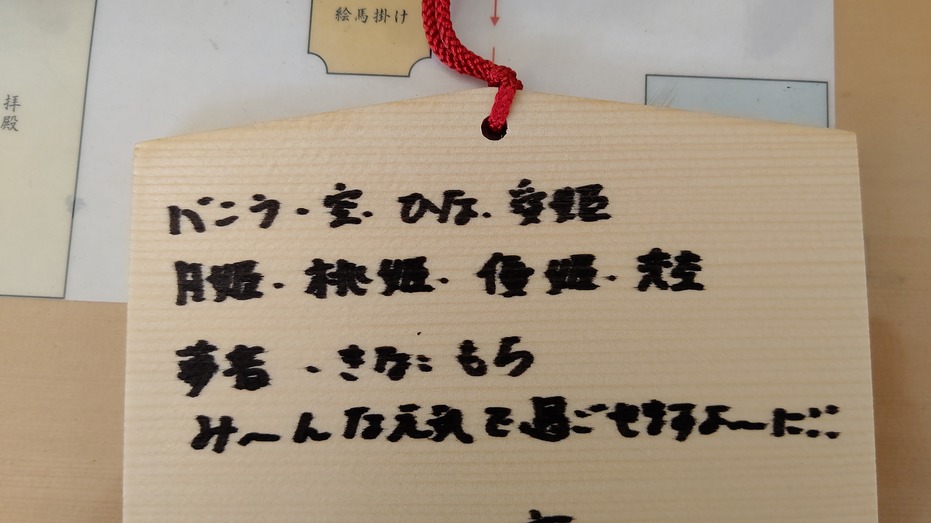 絵馬掛け
拝殿
バニラ・空・ひな・愛姫
月姫・桃姫・優姫・
夢者・きなこもち
み〜んな元気で過ごせますよ〜に